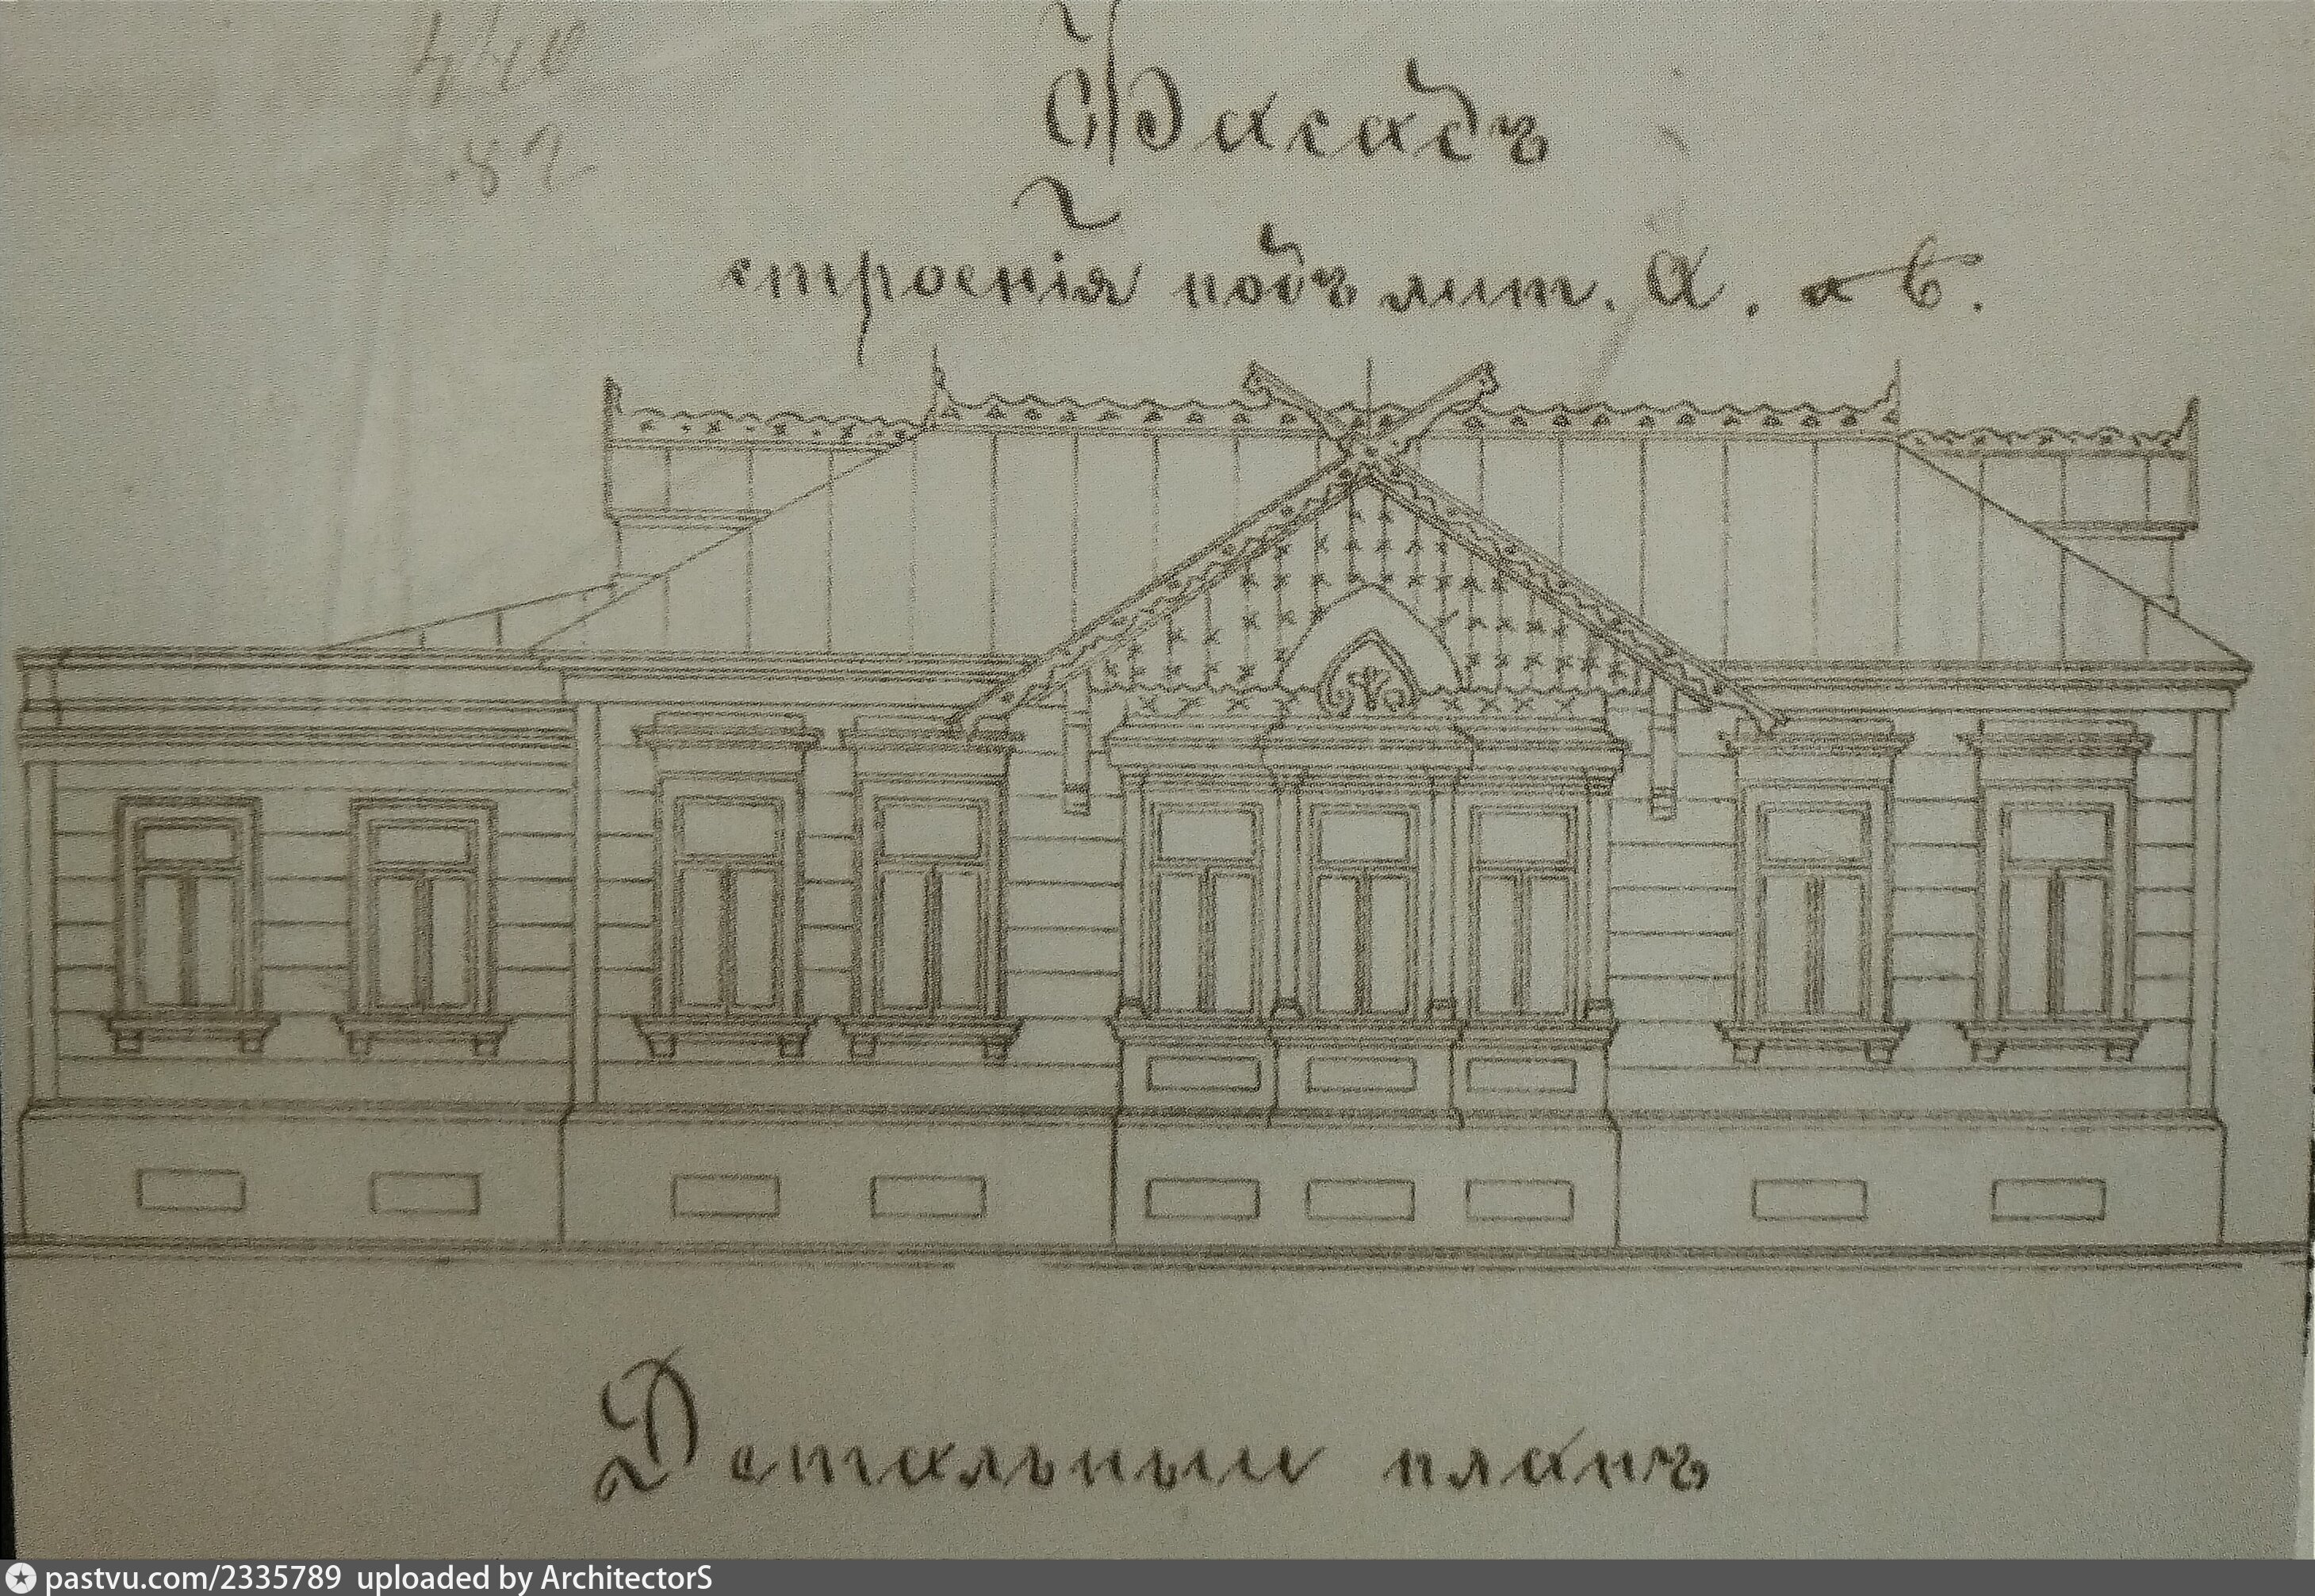 Фасадъ
строенія подъ лит. А. а В.
Детальный планъ
pastvu.com/2335789 uploaded by ArchitectorS